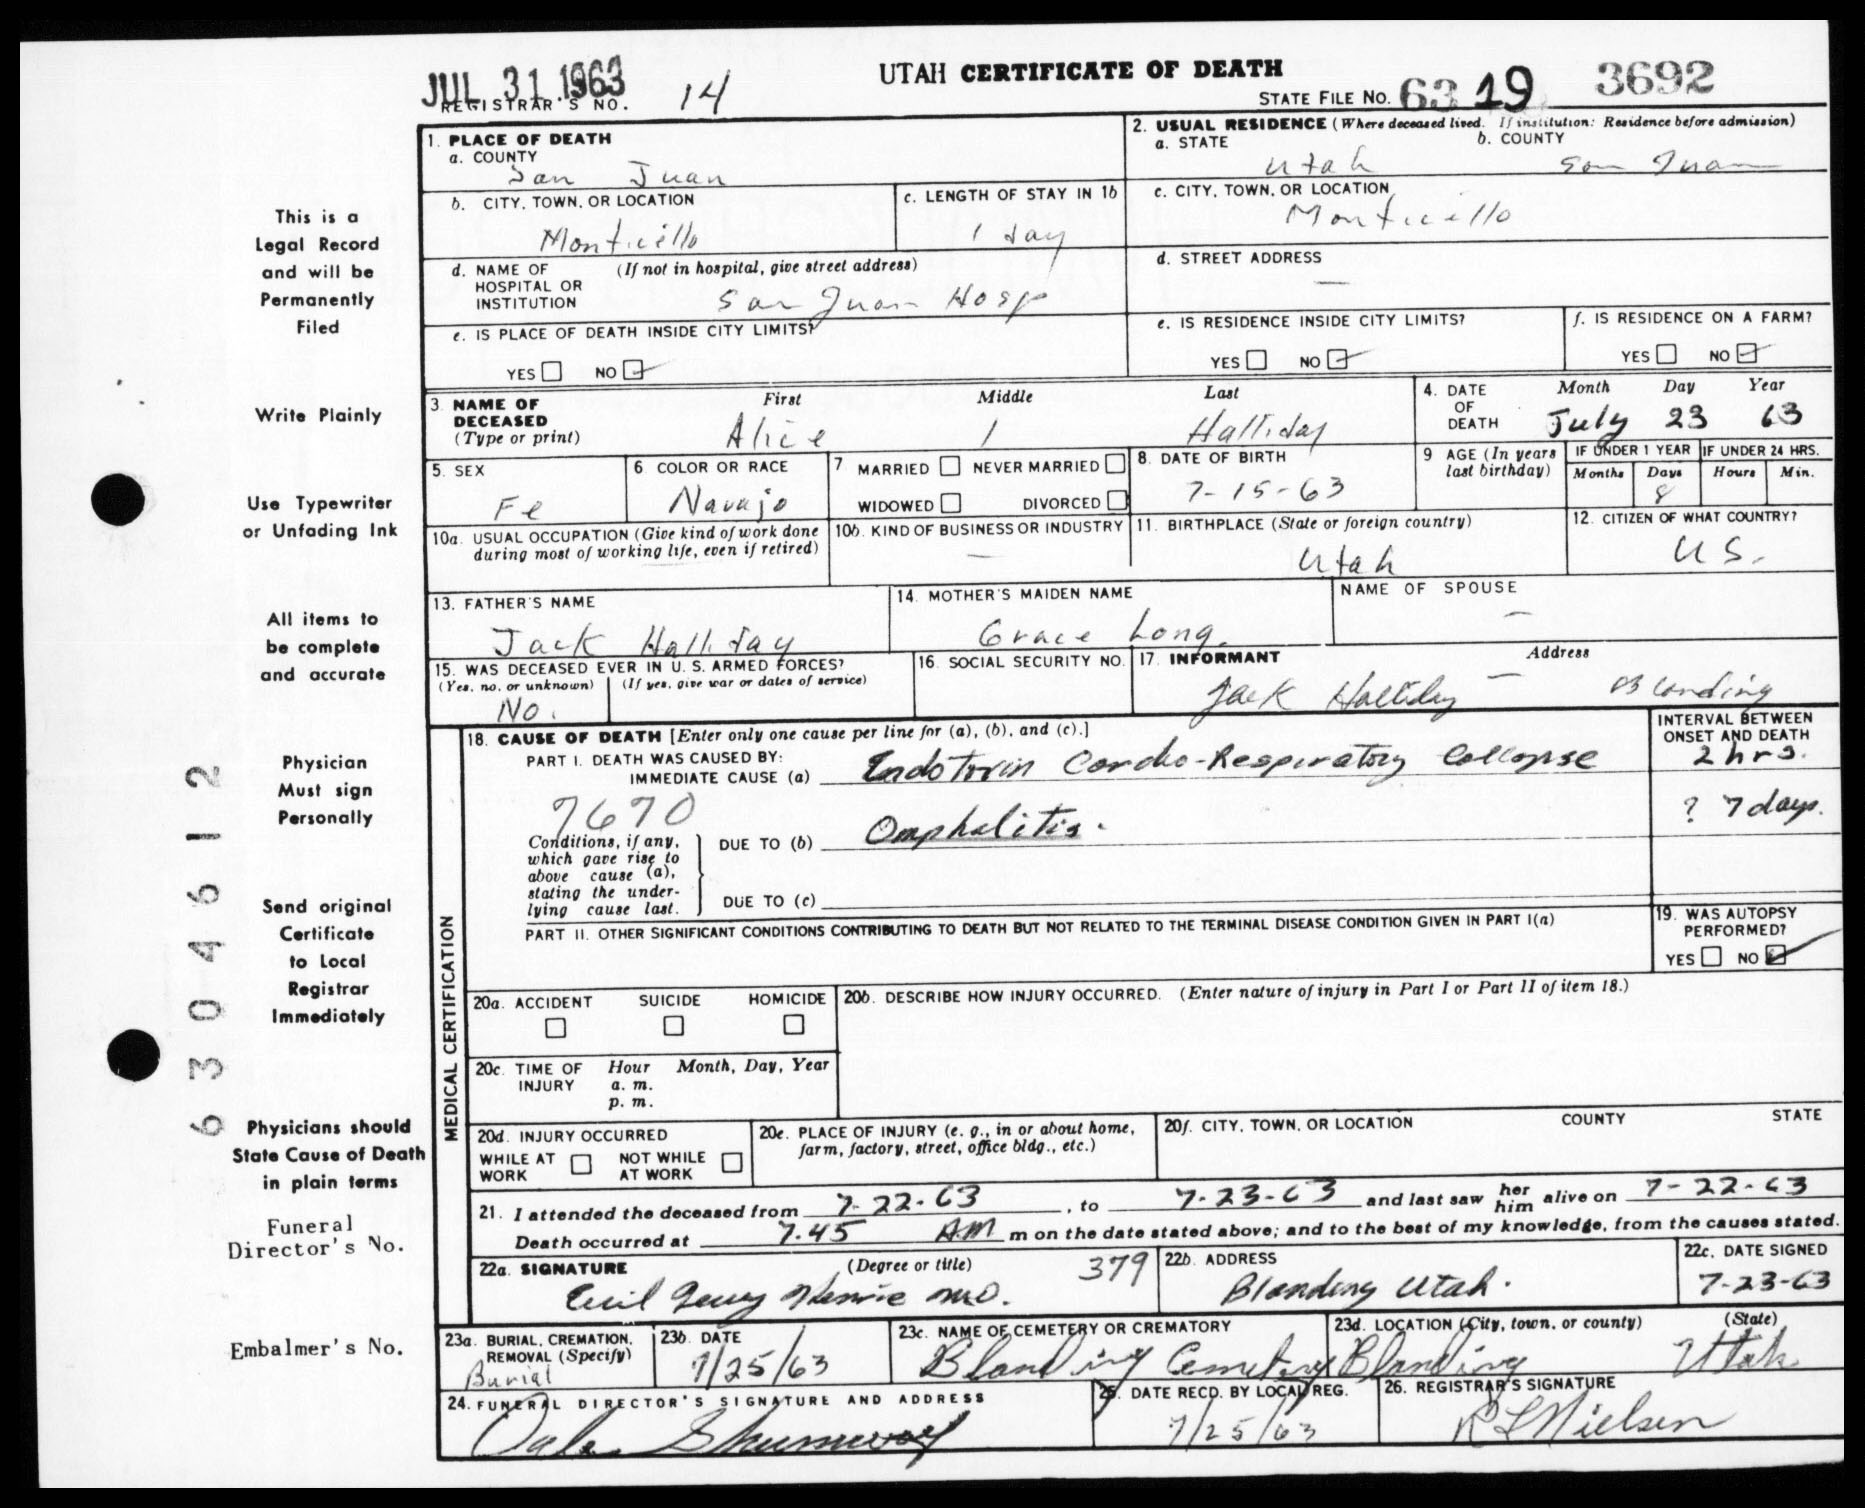 JUL 31 1963
UTAH CERTIFICATE OF DEATH
REGISTRAR'S NO. 14
STATE FILE NO. 63 19 3692
1. PLACE OF DEATH
a. COUNTY
San Juan
2. USUAL RESIDENCE (Where deceased lived. If institution: Residence before admission)
a. STATE b. COUNTY
Utah San Juan
b. CITY, TOWN, OR LOCATION
Monticello
c. LENGTH OF STAY IN 1b
1 day
c. CITY, TOWN, OR LOCATION
Monticello
d. NAME OF HOSPITAL OR INSTITUTION (If not in hospital, give street address)
San Juan Hosp
d. STREET ADDRESS
—
e. IS PLACE OF DEATH INSIDE CITY LIMITS?
YES NO
e. IS RESIDENCE INSIDE CITY LIMITS?
YES NO
f. IS RESIDENCE ON A FARM?
YES NO
3. NAME OF DECEASED (Type or print)
First Middle Last
Alice / Halliday
4. DATE OF DEATH
Month Day Year
July 23 63
5. SEX
Fe
6. COLOR OR RACE
Navajo
7 MARRIED NEVER MARRIED
WIDOWED DIVORCED
8. DATE OF BIRTH
7-15-63
9 AGE (In years last birthday)
IF UNDER 1 YEAR IF UNDER 24 HRS.
Months Days Hours Min.
8
10a. USUAL OCCUPATION (Give kind of work done during most of working life, even if retired)
10b. KIND OF BUSINESS OR INDUSTRY
—
11. BIRTHPLACE (State or foreign country)
Utah
12. CITIZEN OF WHAT COUNTRY?
U S.
13. FATHER'S NAME
Jack Halliday
14. MOTHER'S MAIDEN NAME
Grace Long.
NAME OF SPOUSE
—
15. WAS DECEASED EVER IN U. S. ARMED FORCES?
(Yes, no, or unknown) (If yes, give war or dates of service)
No.
16. SOCIAL SECURITY NO.
17. INFORMANT Address
Jack Halliday — Blanding
MEDICAL CERTIFICATION
18. CAUSE OF DEATH [Enter only one cause per line for (a), (b), and (c).]
INTERVAL BETWEEN ONSET AND DEATH
PART I. DEATH WAS CAUSED BY:
IMMEDIATE CAUSE (a) Endotoxin Cardio-Respiratory Collapse 2 hrs.
7670
Conditions, if any, which gave rise to above cause (a), stating the underlying cause last.
DUE TO (b) Omphalitis. ? 7 days.
DUE TO (c)
PART II. OTHER SIGNIFICANT CONDITIONS CONTRIBUTING TO DEATH BUT NOT RELATED TO THE TERMINAL DISEASE CONDITION GIVEN IN PART I(a)
19. WAS AUTOPSY PERFORMED?
YES NO
20a. ACCIDENT SUICIDE HOMICIDE
20b. DESCRIBE HOW INJURY OCCURRED. (Enter nature of injury in Part I or Part II of item 18.)
20c. TIME OF INJURY Hour Month, Day, Year
a. m.
p. m.
20d. INJURY OCCURRED
WHILE AT WORK NOT WHILE AT WORK
20e. PLACE OF INJURY (e. g., in or about home, farm, factory, street, office bldg., etc.)
20f. CITY, TOWN, OR LOCATION COUNTY STATE
21. I attended the deceased from 7-22-63, to 7-23-63 and last saw her him alive on 7-22-63
Death occurred at 7.45 AM m on the date stated above; and to the best of my knowledge, from the causes stated.
22a. SIGNATURE (Degree or title) 379
M.D.
22b. ADDRESS
Blanding Utah.
22c. DATE SIGNED
7-23-63
23a. BURIAL, CREMATION, REMOVAL (Specify)
Burial
23b. DATE
7/25/63
23c. NAME OF CEMETERY OR CREMATORY
Blanding Cemetery
23d. LOCATION (City, town, or county) (State)
Blanding Utah
24. FUNERAL DIRECTOR'S SIGNATURE AND ADDRESS
Dale Shumway
25. DATE RECD. BY LOCAL REG.
7/25/63
26. REGISTRAR'S SIGNATURE
R L Nielsen
This is a
Legal Record
and will be
Permanently
Filed
Write Plainly
Use Typewriter
or Unfading Ink
All items to
be complete
and accurate
Physician
Must sign
Personally
Send original
Certificate
to Local
Registrar
Immediately
Physicians should
State Cause of Death
in plain terms
Funeral
Director's No.
Embalmer's No.
6304612